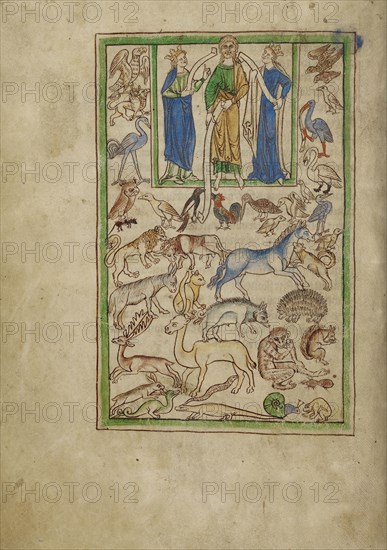 PHOTO 12 PHOTO 12 PHOTO 12
PHOTO 12 PHOTO 12 PHOTO 12
PHOTO 12 PHOTO 12 PHOTO 12
PHOTO 12 PHOTO 12 PHOTO 12
PHOTO 12 PHOTO 12 PHOTO 12
PHOTO 12 PHOTO 12 PHOTO 12
PHOTO 12 PHOTO 12 PHOTO 12